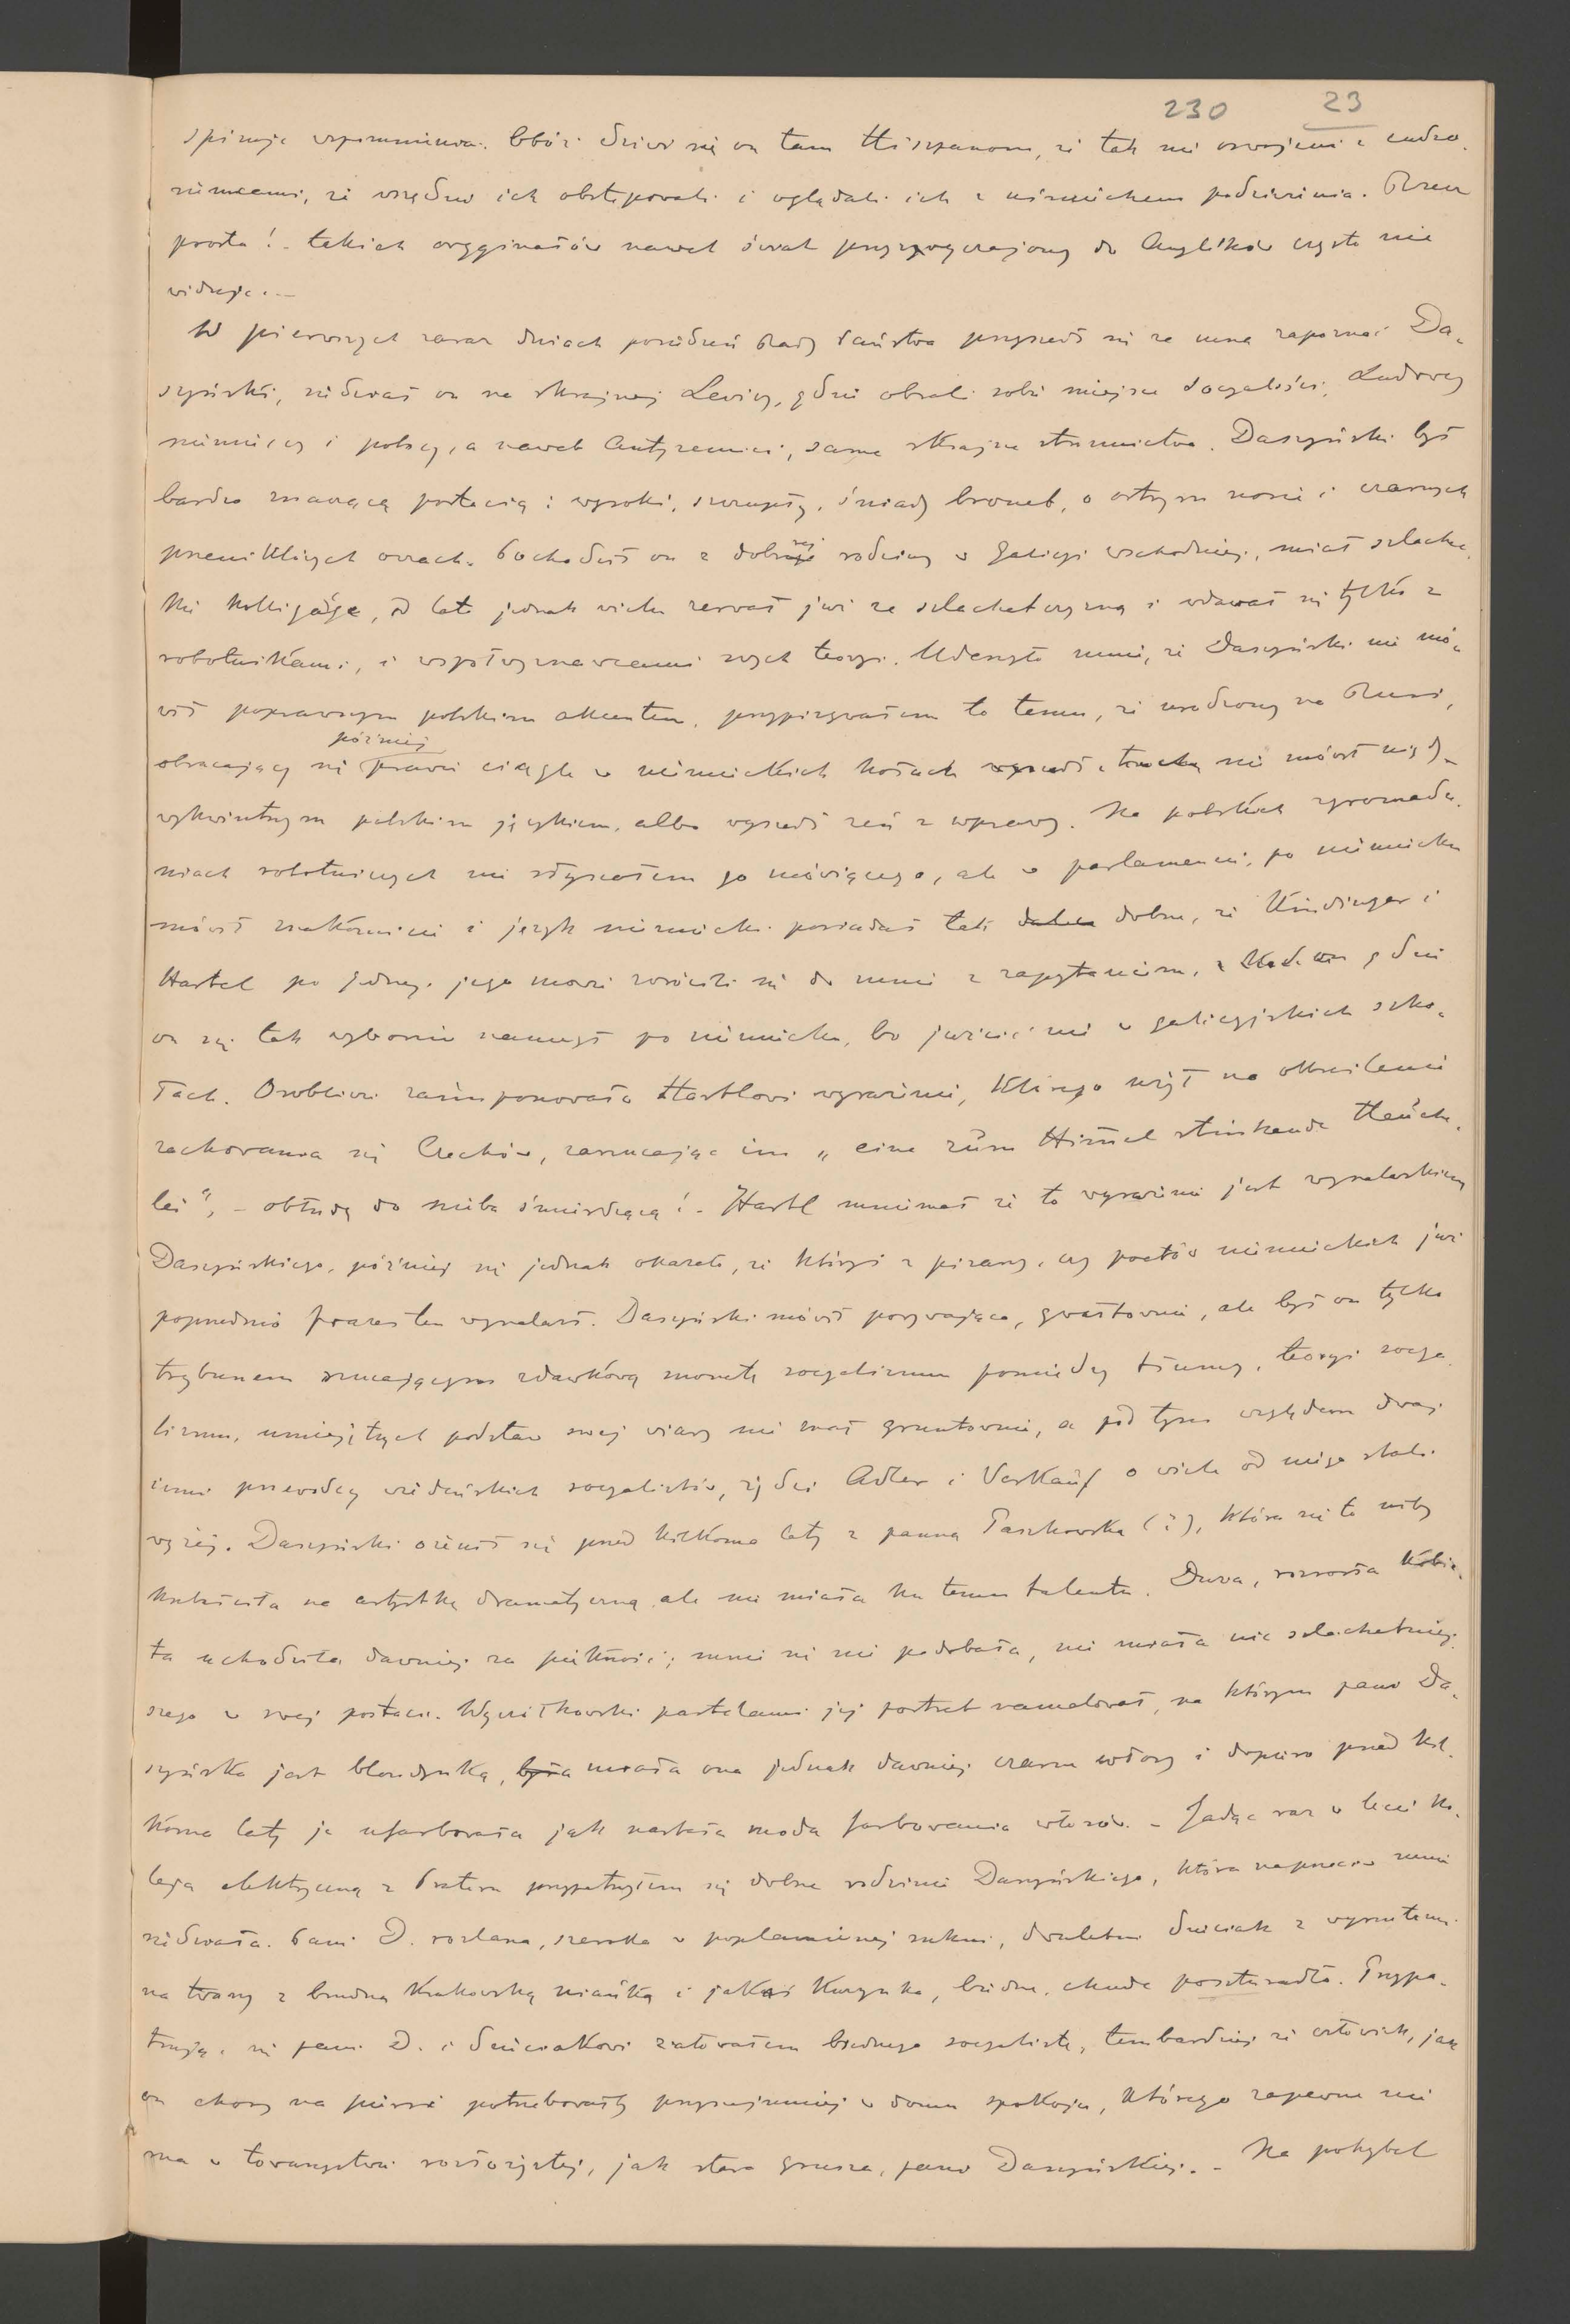 230 23
spiruje wspomnienia. Dziwi się on tam Hiszpanom, że tak nie oswojeni z cudzo-
ziemcami, że wszędzie ich obstępowali i oglądali ich z uśmiechem podziwienia. Rzecz
prosta! - takich oryginałów nawet świat przyzwyczajony do Anglików często nie
widuje. -
W pierwszych zaraz dniach posiedzeń Rady Państwa przyszedł się ze mną zapoznać Da-
szyński, siedział on na skrajnej Lewicy, gdzie obrali sobie miejsce socyaliści, Ludowcy
niemieccy i polscy, a nawet Antysemici, same skrajne stronnictwa. Daszyński był
bardzo znaczącą postacią: wysoki, szczupły, śniady brunet, o ostrym nosie i czarnych
przenikliwych oczach. Pochodził on z dobrej rodziny w Galicyi wschodniej, miał szlachec-
kie kolligacje, od lat jednak wielu zerwał już ze szlachetczyzną i wdawał się tylko z
robotnikami, i współwyznawcami swych teoryi. Uderzyło mnie, że Daszyński nie mó-
wił poprawnym polskim akcentem, przypisywałem to temu, że urodzony na Rusi,
później
obracający się prawie ciągle w niemieckich kołach nie mówił nigdy
wykwintnym polskim językiem, albo wyszedł zeń z wprawy. Na polskich zgromadze-
niach robotniczych nie słyszałem go mówiącego, ale w parlamencie, po niemiecku
mówił znakomicie i język niemiecki posiadał tak dobrze, że Kindinger i
Hartel po jednej jego mowie zwrócili się do mnie z zapytaniem, gdzie
on się tak wybornie nauczył po niemiecku, bo jużcić nie w galicyjskich szko-
łach. Osobliwie zaimponowało Hartlowi wyrażenie, którego użył na określenie
zachowania się Czechów, zarzucając im „eine zum Himmel stinkende Heuche-
lei", - obłudę do nieba śmierdzącą! - Hartl mniemał że to wyrażenie jest wynalazkiem
Daszyńskiego, później się jednak okazało, że któryś z pisarzy, czy poetów niemieckich już
poprzednio frazes ten wynalazł. Daszyński mówił porywająco, gwałtownie, ale był on tylko
trybunem rzucającym zdawkową monetę socyalizmu pomiędzy tłumy, teoryi socya-
lizmu, umiejętnych podstaw swej wiary nie znał gruntownie, a pod tym względem dwaj
inni przewódcy wiedeńskich socyalistów, żydzi Adler i Verkauf o wiele od niego stali
wyżej. Daszyński ożenił się przed kilkoma laty z panną Paszkowską (?), która się to niby
kształciła na artystkę dramatyczną ale nie miała ku temu talentu. Duża, rozrosła kobie-
ta uchodziła dawniej za piękność; mnie się nie podobała, nie miała nic szlachetniej-
szego w swej postaci. Wyczółkowski pastelami jej portret namalował, na którym pani Da-
szyńska jest blondynką, była miała ona jednak dawniej czarne włosy i dopiero przed kil-
koma laty je ufarbowała jak nastała moda farbowania włosów. - Jadąc raz w lecie ko-
leją elektryczną z Prateru przypatrzyłem się dobrze rodzinie Daszyńskiego, która naprzeciw mnie
siedziała. Pani D. rozlana, szeroka w poplamionej sukni, dwuletni dzieciak z wyrzutami
na twarzy z brudną krakowską niańką i jakaś kuzynka, brudna, chuda poczturadło. Przypa-
trując się pani D. i dzieciakowi żałowałem biednego socyalistę, tembardziej że człowiek, jak
on chory na piersi potrzebowałby przynajmniej w domu spokoju, którego zapewne nie
ma w towarzystwie rozłożystej, jak stara grusza, pani Daszyńskiej. - Na pohybel